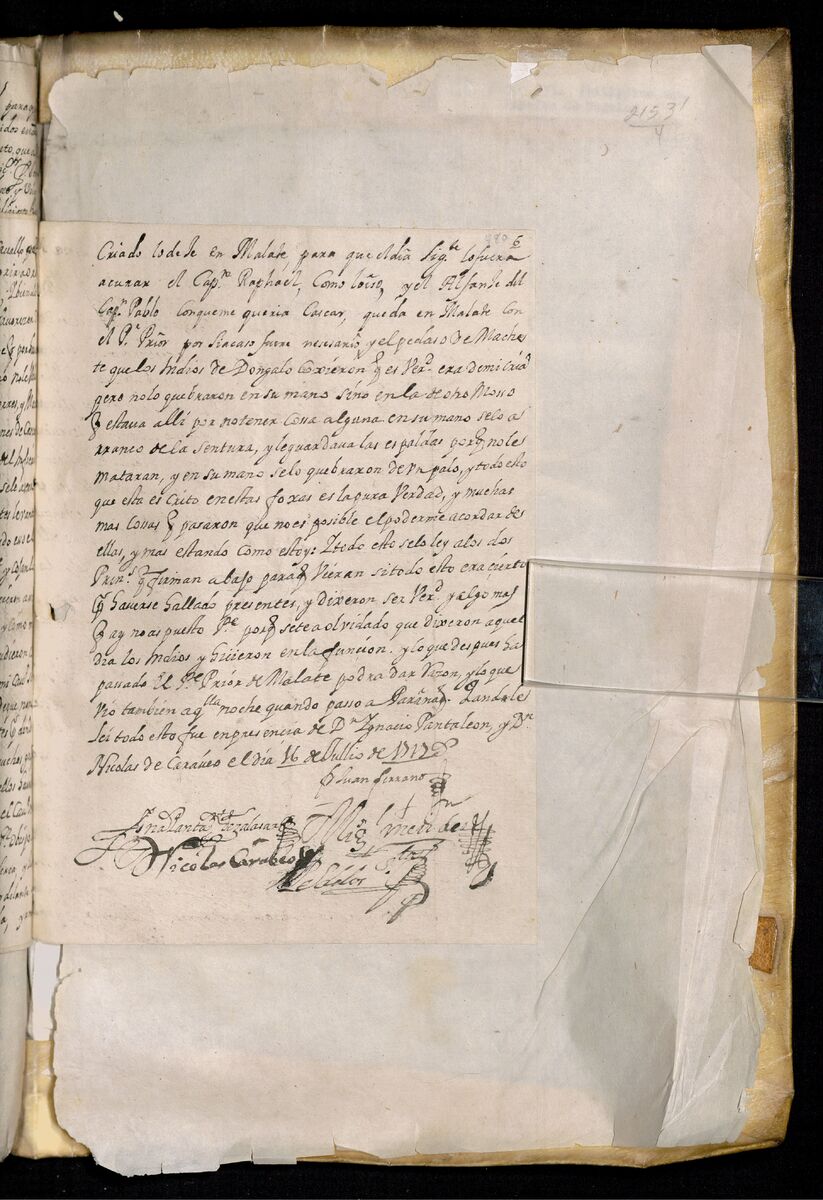 2153 1
4
6
Criado lo deje en Malate para que el dia Sig.te lo fuera
acurar el Cap.n Raphael, Como lo iso, y el Alfanje del
Cap.n Pablo Conqueme queria Cascar, queda en Malate Con
el P.e Prior por si acaso fuere nesesario, y el pedaso de Mache
te que los Indios de Dongalo Coxieron q es Ver.d era demi criad
pero nolo quebraron en su mano sino en la de otro Mosso
q estava alli por notener Cossa alguna en su mano selo a
rranco de la Sentura, y le guardava las espaldas porq no le
mataran, y en su mano selo quebraron de Un palo, y todo esto
que esta escrito en estas foxas es la pura Verdad, y muchas
mas Cossas q pasaron que no es posible el poderme acordar de
ellas, y mas estando Como estoy: Ztodo esto selo ley alos dos
Prin.s q firman abajo paraq Vieran si todo esto era cierto
q haverse hallado presentes, y dixeron ser Ver.d y algo mas
q ay no as puesto P.e porq sete a olvidado que dixeron aquel
dia los Indios y hisieron en la funcion. y lo que despues ha
passado El P.e Prior de Malate podra dar Razon, y lo que
Vio tambien aq.lla noche quando passo a Parañaq.
lei todo esto fue enpresencia de D.n Ygnacio Pantaleon, y D.n
Nicolas de Caraveo el dia 16 de Jullio de 1717
Fr Juan Serrano
Nicolas Carabeo